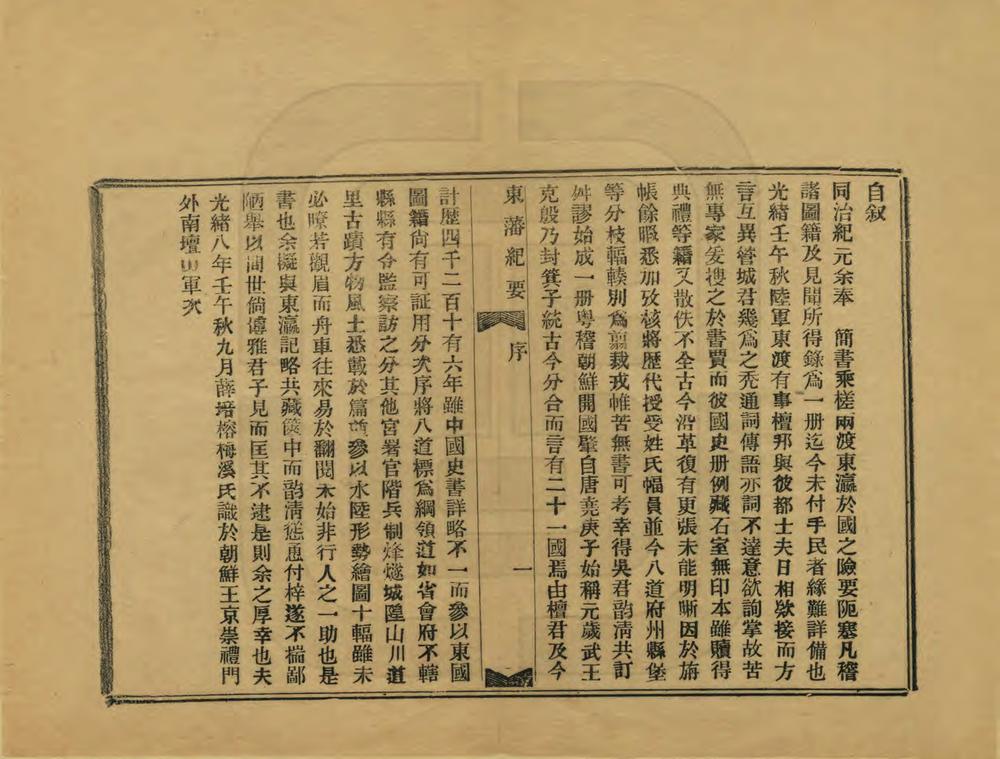 自叙
同治紀元余奉　簡書乘槎兩渡東瀛於國之險要阨塞凡稽
諸圖籍及見聞所得錄爲一册迄今未付手民者緣難詳備也
光緒壬午秋陸軍東渡有事檀邦與彼都士夫日相欵接而方
言互異管城君幾爲之禿通詞傳語亦詞不達意欲詢掌故苦
無專家爰搜之於書賈而彼國史册例藏石室無印本雖購得
典禮等籍又散佚不全古今沿革復有更張未能明晰因於旃
帳餘暇悉加攷核將歷代授受姓氏幅員並今八道府州縣堡
等分枝輻輳別爲翦裁戎帷苦無書可考幸得吳君韵清共訂
舛謬始成一册粤稽朝鮮開國肇自唐堯庚子始稱元歲武王
克殷乃封箕子統古今分合而言有二十一國焉由檀君及今
東藩紀要　序　一
計歷四千二百十有六年雖中國史書詳略不一而參以東國
圖籍尙有可証用分次序將八道標爲綱領道如省會府不轄
縣縣有令監察訪之分其他官署官階兵制烽燧城隍山川道
里古蹟方物風土悉載於篇首參以水陸形勢繪圖十輻雖未
必瞭若觀眉而舟車往來易於翻閱未始非行人之一助也是
書也余擬與東瀛記略共藏篋中而韵清慫恿付梓遂不揣鄙
陋舉以問世倘博雅君子見而匡其不逮是則余之厚幸也夫
光緒八年壬午秋九月薛培榕梅溪氏識於朝鮮王京崇禮門
外南壇山軍次